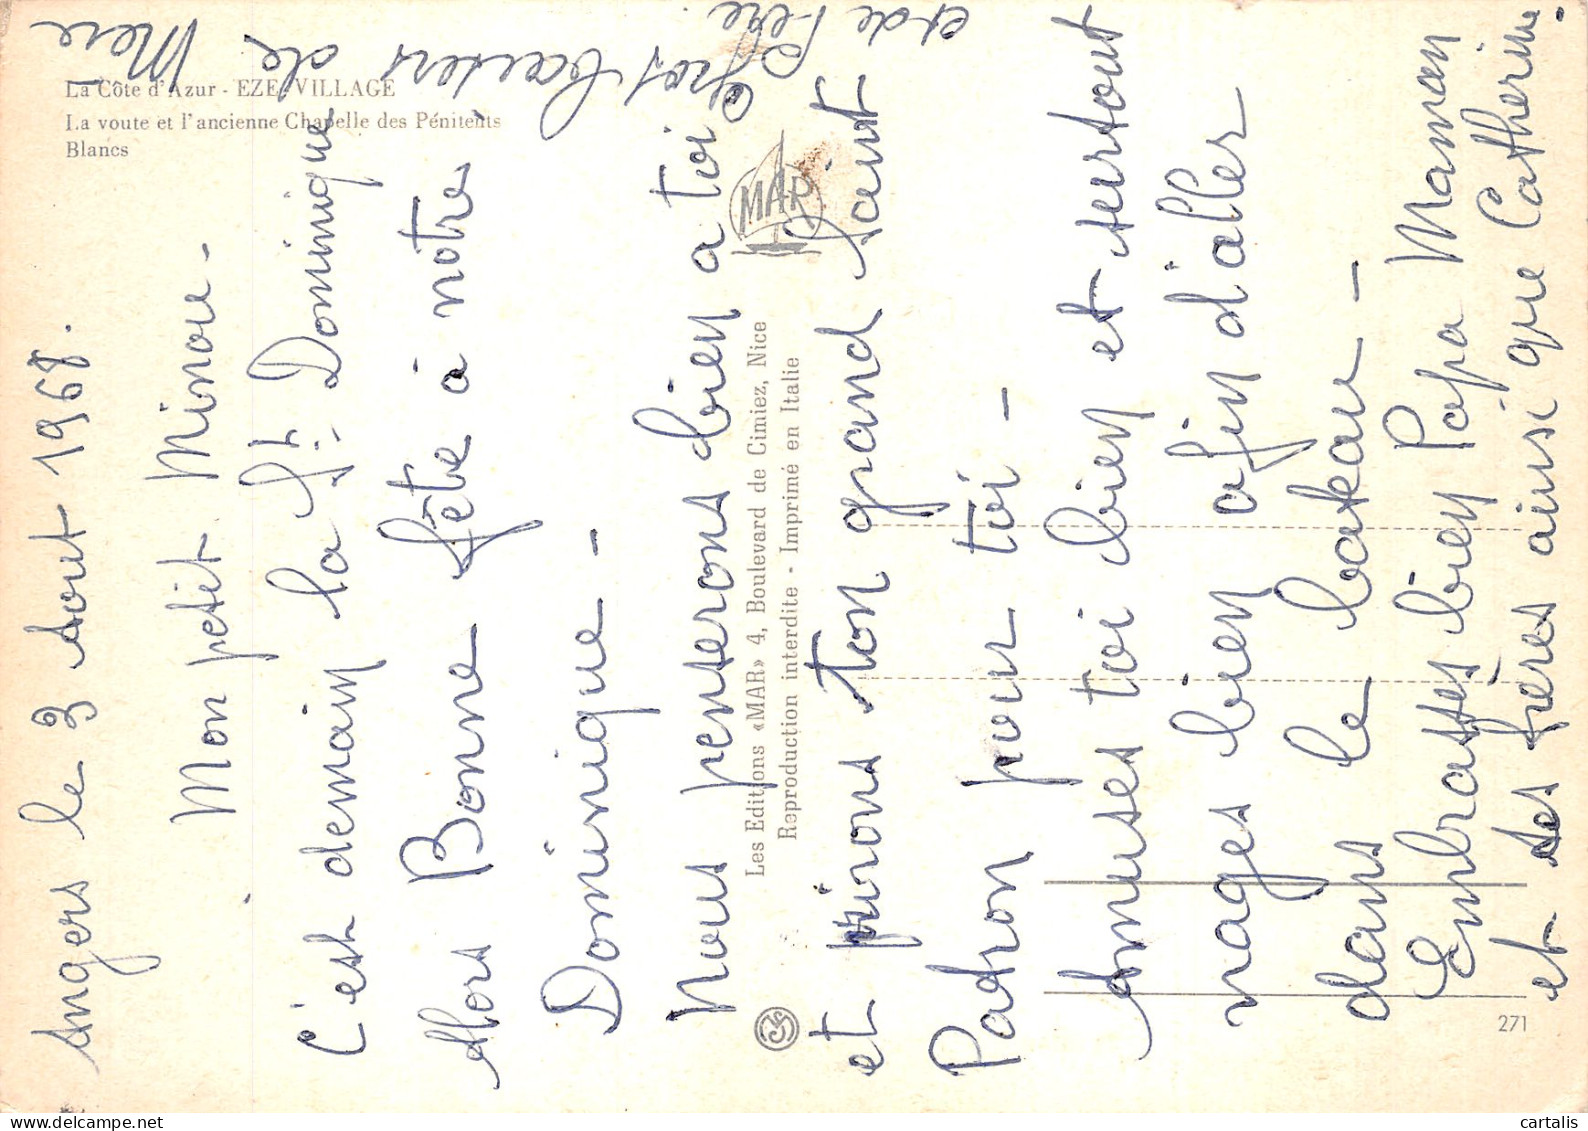 La Côte d'Azur - EZE-VILLAGE
La voute et l'ancienne Chapelle des Pénitents
Blancs
Angers le 3 Aout 1968.
Mon petit Minou -
C'est demain la St. Dominique
Alors Bonne fête à nôtre
Dominique -
Nous penserons bien a toi
et prions ton grand Saint
Patron pour toi -
Amuses toi bien et surtout
nages bien afin d'aller
dans le bateau -
Embrasses bien Papa Maman
et tes frères ainsi que Catherine.
Gros baisers de Mere
et de Père.
MAR
Les Editions «MAR» 4, Boulevard de Cimiez, Nice
Reproduction interdite - Imprimé en Italie
271
cartalis